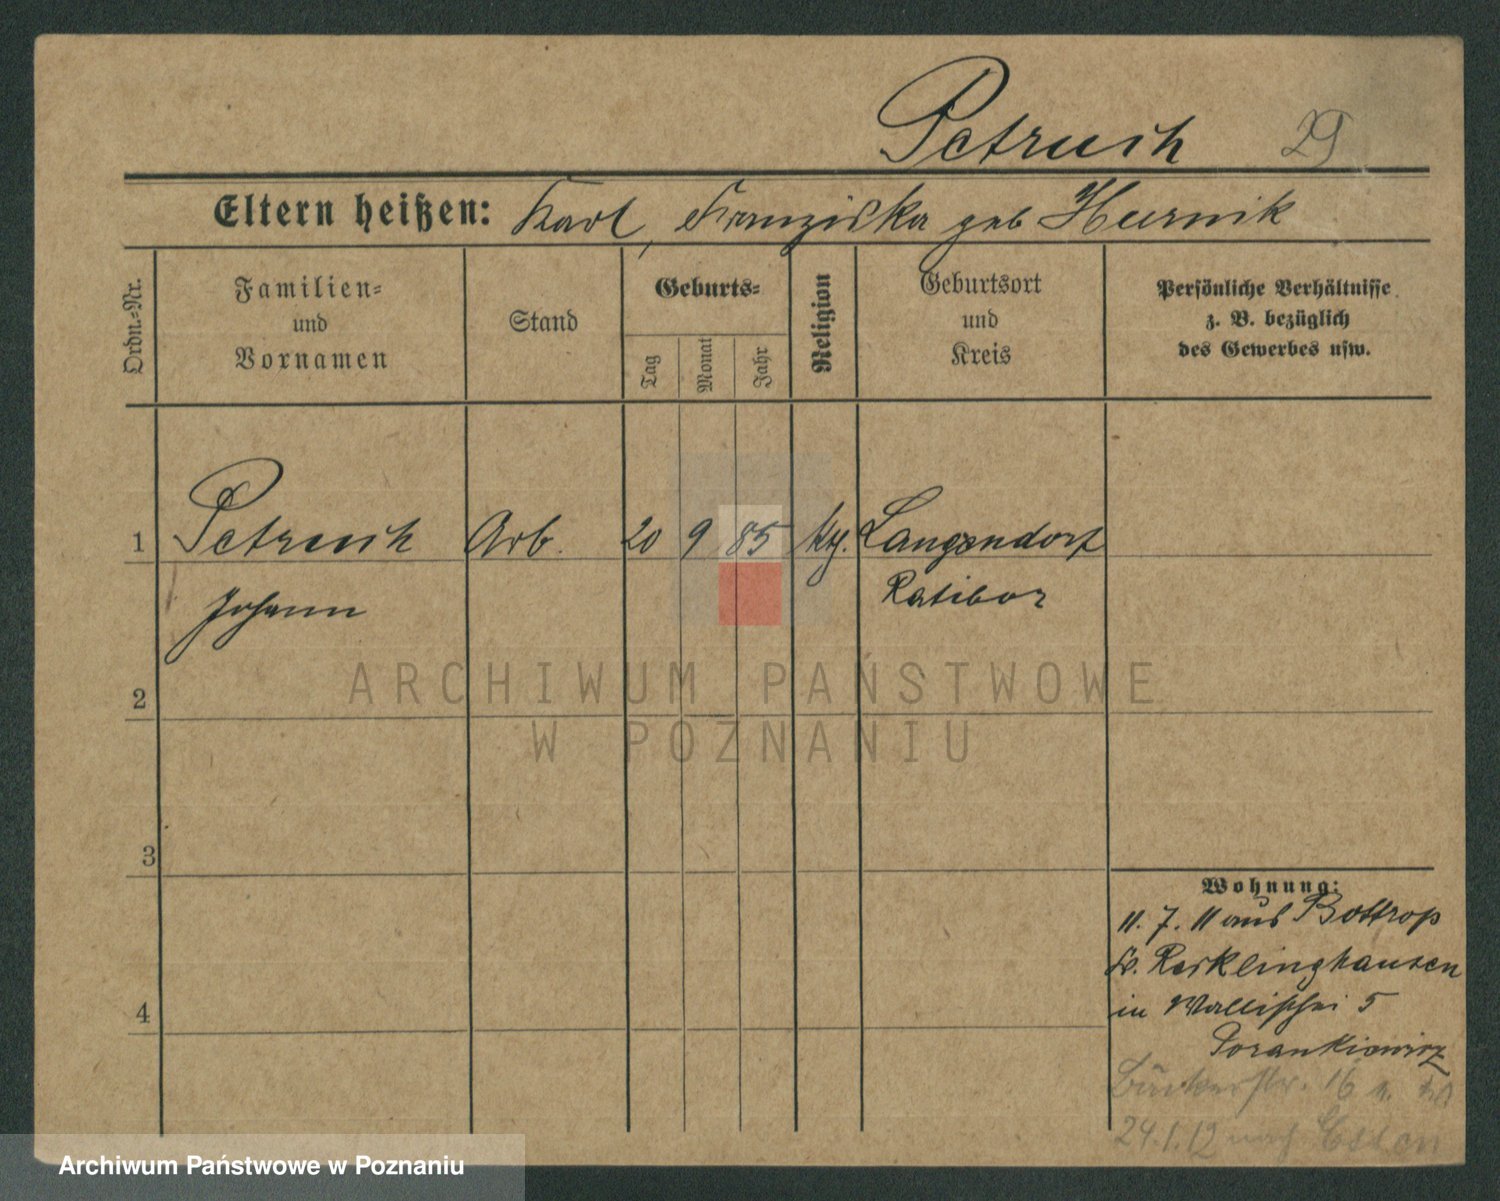 Petrusch 29
Eltern heißen: Karl, Franziska geb Hurnik
Ordn.-Nr.
Familien-
und
Vornamen
Stand
Geburts-
Tag
Monat
Jahr
Religion
Geburtsort
und
Kreis
Persönliche Verhältnisse
z. B. bezüglich
des Gewerbes usw.
1 Petrusch Arb. 20 9 85 kth. Langendorf
Johann Ratibor
ARCHIWUM PAŃSTWOWE
2
W POZNANIU
3
Wohnung:
11. 7. 11 aus Bottrop
Kr. Recklinghausen
4
in Wallischei 5
Porankiewicz
Bäckerstr. 16
24.1.12 nach Essen
Archiwum Państwowe w Poznaniu